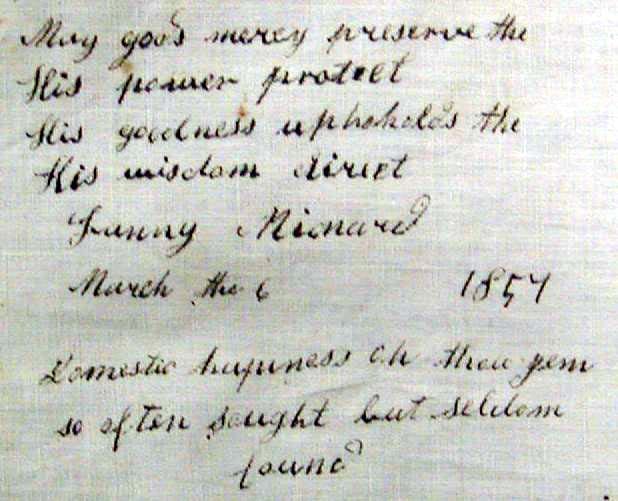 May gods mercy preserve the
His power protect
His goodness upholds the
His wisdom direct
Fanny
March the 6 1857
Domestic happiness oh thou gem
so often sought but seldom
found